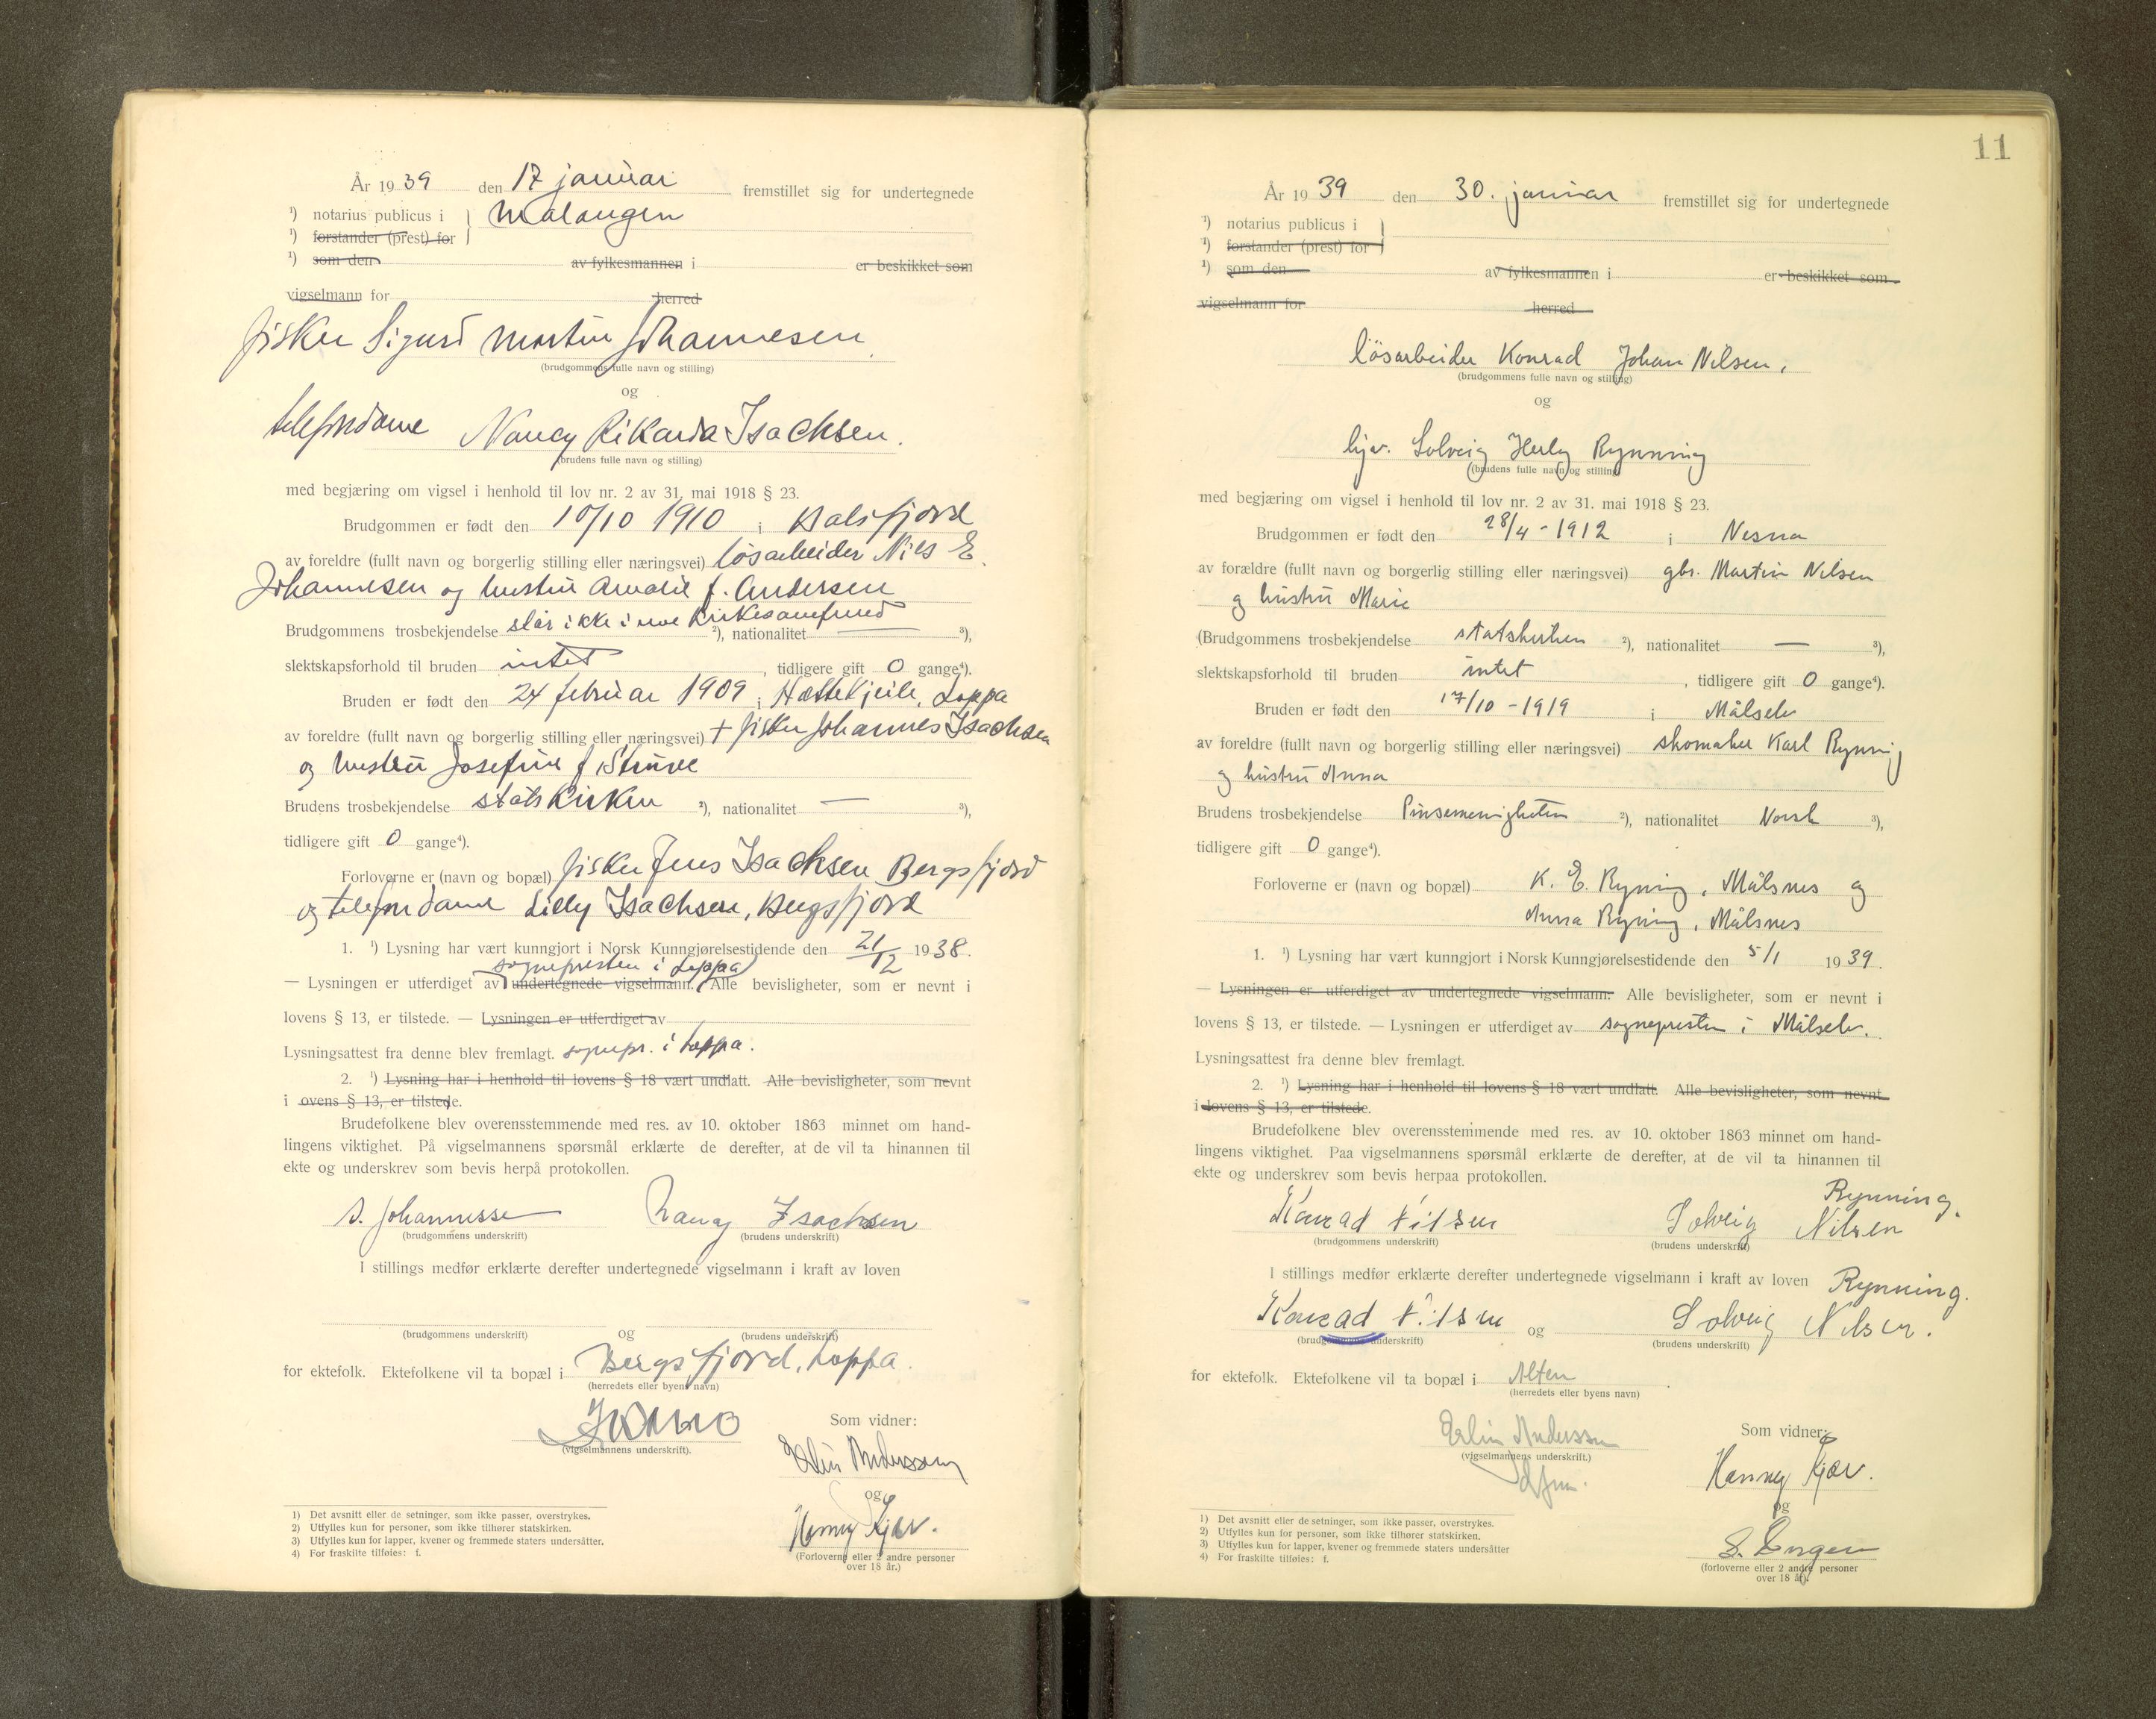 År 1939 den 17 januar fremstillet sig for undertegnede
¹) notarius publicus i Malangen
¹) forstander (prest) for
¹) som den av fylkesmannen i er beskikket som
vigselmann for herred
fisker Sigurd Martin Johannesen
(brudgommens fulle navn og stilling)
og
telefondame Nancy Rikarda Isachsen.
(brudens fulle navn og stilling)
med begjæring om vigsel i henhold til lov nr. 2 av 31. mai 1918 § 23.
Brudgommen er født den 10/10 1910 i Balsfjord
av foreldre (fullt navn og borgerlig stilling eller næringsvei) løsarbeider Nils E.
Johannesen og hustru Amalie f. Andersen
Brudgommens trosbekjendelse står ikke i noe kirkesamfund ²), nationalitet — ³),
slektskapsforhold til bruden intet, tidligere gift 0 gange⁴).
Bruden er født den 24 februar 1909 i Loppa
av foreldre (fullt navn og borgerlig stilling eller næringsvei) + fisker Johannes Isachsen
og hustru Josefine f. Strüve
Brudens trosbekjendelse statskirken ²), nationalitet — ³),
tidligere gift 0 gange⁴).
Forloverne er (navn og bopæl) fisker Jens Isachsen Bergsfjord
og telefondame Lilly Isachsen, Bergsfjord
1. ¹) Lysning har vært kunngjort i Norsk Kunngjørelsestidende den 21/12 1938.
sognepresten i Loppa
— Lysningen er utferdiget av undertegnede vigselmann. Alle bevisligheter, som er nevnt i
lovens § 13, er tilstede. — Lysningen er utferdiget av
Lysningsattest fra denne blev fremlagt. sognepr. i Loppa.
2. ¹) Lysning har i henhold til lovens § 18 vært undlatt. Alle bevisligheter, som nevnt
i ovens § 13, er tilstede.
Brudefolkene blev overensstemmende med res. av 10. oktober 1863 minnet om hand-
lingens viktighet. På vigselmannens spørsmål erklærte de derefter, at de vil ta hinannen til
ekte og underskrev som bevis herpå protokollen.
S. Johannessen Nancy Isachsen
(brudgommens underskrift) (brudens underskrift)
I stillings medfør erklærte derefter undertegnede vigselmann i kraft av loven
og
(brudgommens underskrift) (brudens underskrift)
for ektefolk. Ektefolkene vil ta bopæl i Bergsfjord, Loppa.
(herredets eller byens navn)
Som vidner:
(vigselmannens underskrift).
Erlin Anderssen
og
Hanny Kjær.
(Forloverne eller 2 andre personer
over 18 år.)
1) Det avsnitt eller de setninger, som ikke passer, overstrykes.
2) Utfylles kun for personer, som ikke tilhører statskirken.
3) Utfylles kun for lapper, kvener og fremmede staters undersåtter.
4) For fraskilte tilføies: f.
11
År 1939 den 30. januar fremstillet sig for undertegnede
¹) notarius publicus i
¹) forstander (prest) for
¹) som den av fylkesmannen i er beskikket som
vigselmann for herred
lösarbeider Konrad Johan Nilsen,
(brudgommens fulle navn og stilling)
og
hjv. Solveig Herly Rynning
(brudens fulle navn og stilling)
med begjæring om vigsel i henhold til lov nr. 2 av 31. mai 1918 § 23.
Brudgommen er født den 28/4 - 1912 i Nesna
av forældre (fullt navn og borgerlig stilling eller næringsvei) gbr. Martin Nilsen
og hustru Marie
(Brudgommens trosbekjendelse statskirken ²), nationalitet — ³),
slektskapsforhold til bruden intet, tidligere gift 0 gange⁴).
Bruden er født den 17/10 - 1919 i Målselv
av foreldre (fullt navn og borgerlig stilling eller næringsvei) skomaker Karl Rynning
og hustru Anna
Brudens trosbekjendelse Pinsemenigheten ²), nationalitet Norsk ³),
tidligere gift 0 gange⁴).
Forloverne er (navn og bopæl) K. E. Ryning, Målsnes og
Anna Ryning, Målsnes
1. ¹) Lysning har vært kunngjort i Norsk Kunngjørelsestidende den 5/1 1939.
— Lysningen er utferdiget av undertegnede vigselmann. Alle bevisligheter, som er nevnt i
lovens § 13, er tilstede. — Lysningen er utferdiget av sognepresten i Målselv.
Lysningsattest fra denne blev fremlagt.
2. ¹) Lysning har i henhold til lovens § 18 vært undlatt. Alle bevisligheter, som nevnt
i lovens § 13, er tilstede.
Brudefolkene blev overensstemmende med res. av 10. oktober 1863 minnet om hand-
lingens viktighet. Paa vigselmannens spørsmål erklærte de derefter, at de vil ta hinannen til
ekte og underskrev som bevis herpaa protokollen.
Rynning.
Konrad Nilsen Solveig Nilsen
(brudgommens underskrift) (brudens underskrift)
I stillings medfør erklærte derefter undertegnede vigselmann i kraft av loven Rynning.
Konrad Nilsen og Solveig Nilsen.
(brudgommens underskrift) (brudens underskrift)
for ektefolk. Ektefolkene vil ta bopæl i Alten
(herredets eller byens navn)
Erlin Anderssen
(vigselmannens underskrift.)
Som vidner:
Hanny Kjær.
og
S. Engen
(forloverne eller 2 andre personer
over 18 år).
1) Det avsnitt eller de setninger, som ikke passer, overstrykes.
2) Utfylles kun for personer, som ikke tilhører statskirken.
3) Utfylles kun for lapper, kvener og fremmede staters undersåtter
4) For fraskilte tilføies: f.